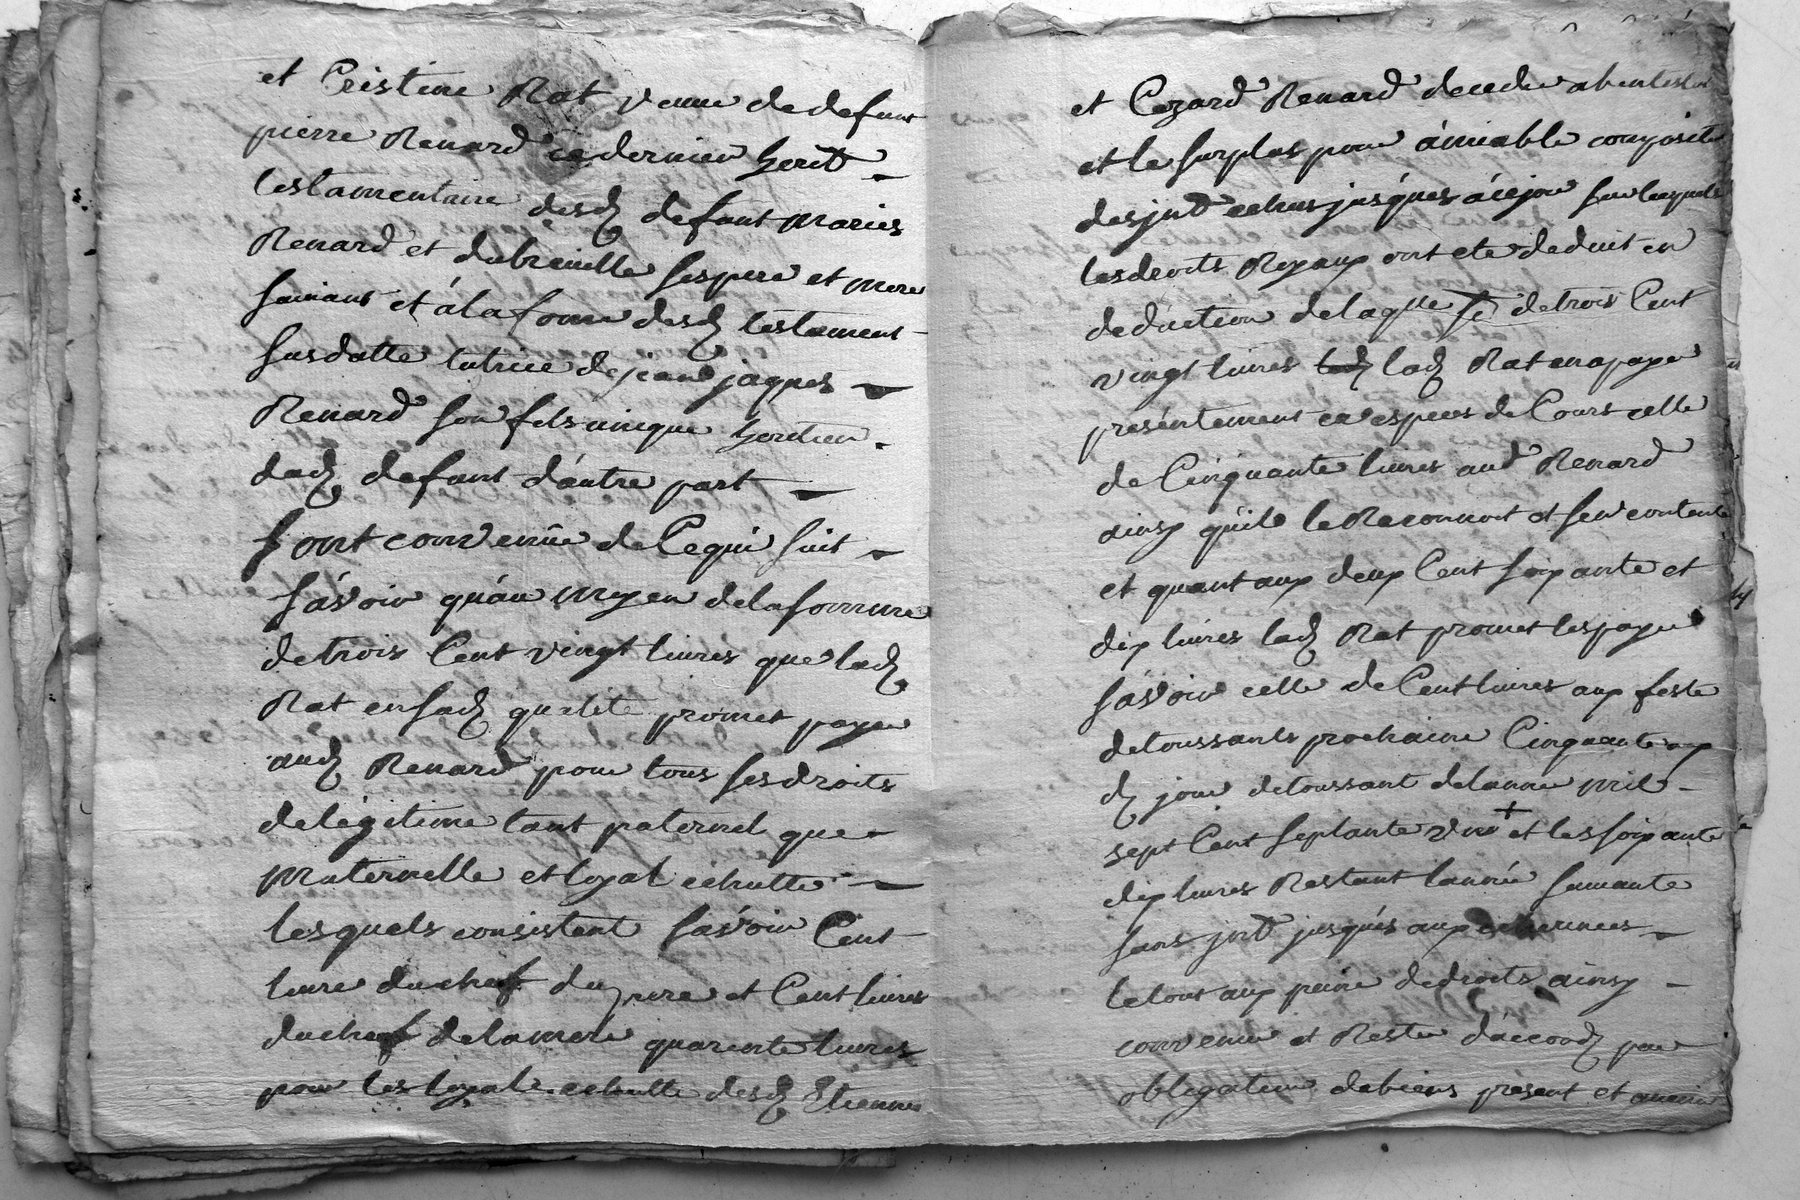 et Cristine Rat veuve de defunt
pierre Renard ce dernier herit
testamentaire desd defunt maries
Renard et dubreuille ses pere et mere
suivant et à la forme desd testament
susdatte tutrice de jean jaques
Renard son fils unique heritier
dud defunt d'autre part
sont convenüe de Ce qui suit
sávoir qu'au moyen de la somme
de trois Cent vingt livres que lad
Rat en sad qualité promet payer
aud Renard pour tous ses droits
de légitime tant paternel que
maternelle et loyal echutte
lesquels consistent sávoir Cent
livre du chef du pere et Cent livres
du chef de la mere quarente livres
pour les loyal echutte desd Etienne
et Cezard Renard decede abintestat
et le surplus pour ámiable composit
des jnt echus jusques á ce jour sur lesquels
les droits Royaux ont ete deduit en
deduction de laqlle se de trois Cent
vingt livres lad Rat en a payé
presentement en especes de Cours celle
de Cinquante livres aud Renard
ainsy qu'il le Reconnoit et s'en contente
et quant aux deux Cent soixante et
dix livres lad Rat promet les payer
sávoir celle de Cent livres aux feste
de toussants prochaine Cinquante aux
d jour de toussant de lannee mil
sept Cent septante + et les soixante
dix livres Restant lannée suivante
sans jnt jusqués aux echeances
le tout aux peine de droits ainsy
convenue et Reste d'accord par
obligation de biens présent et avenir